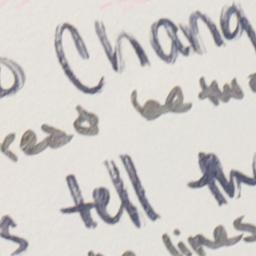 Chang
read betwe
tell th
lines